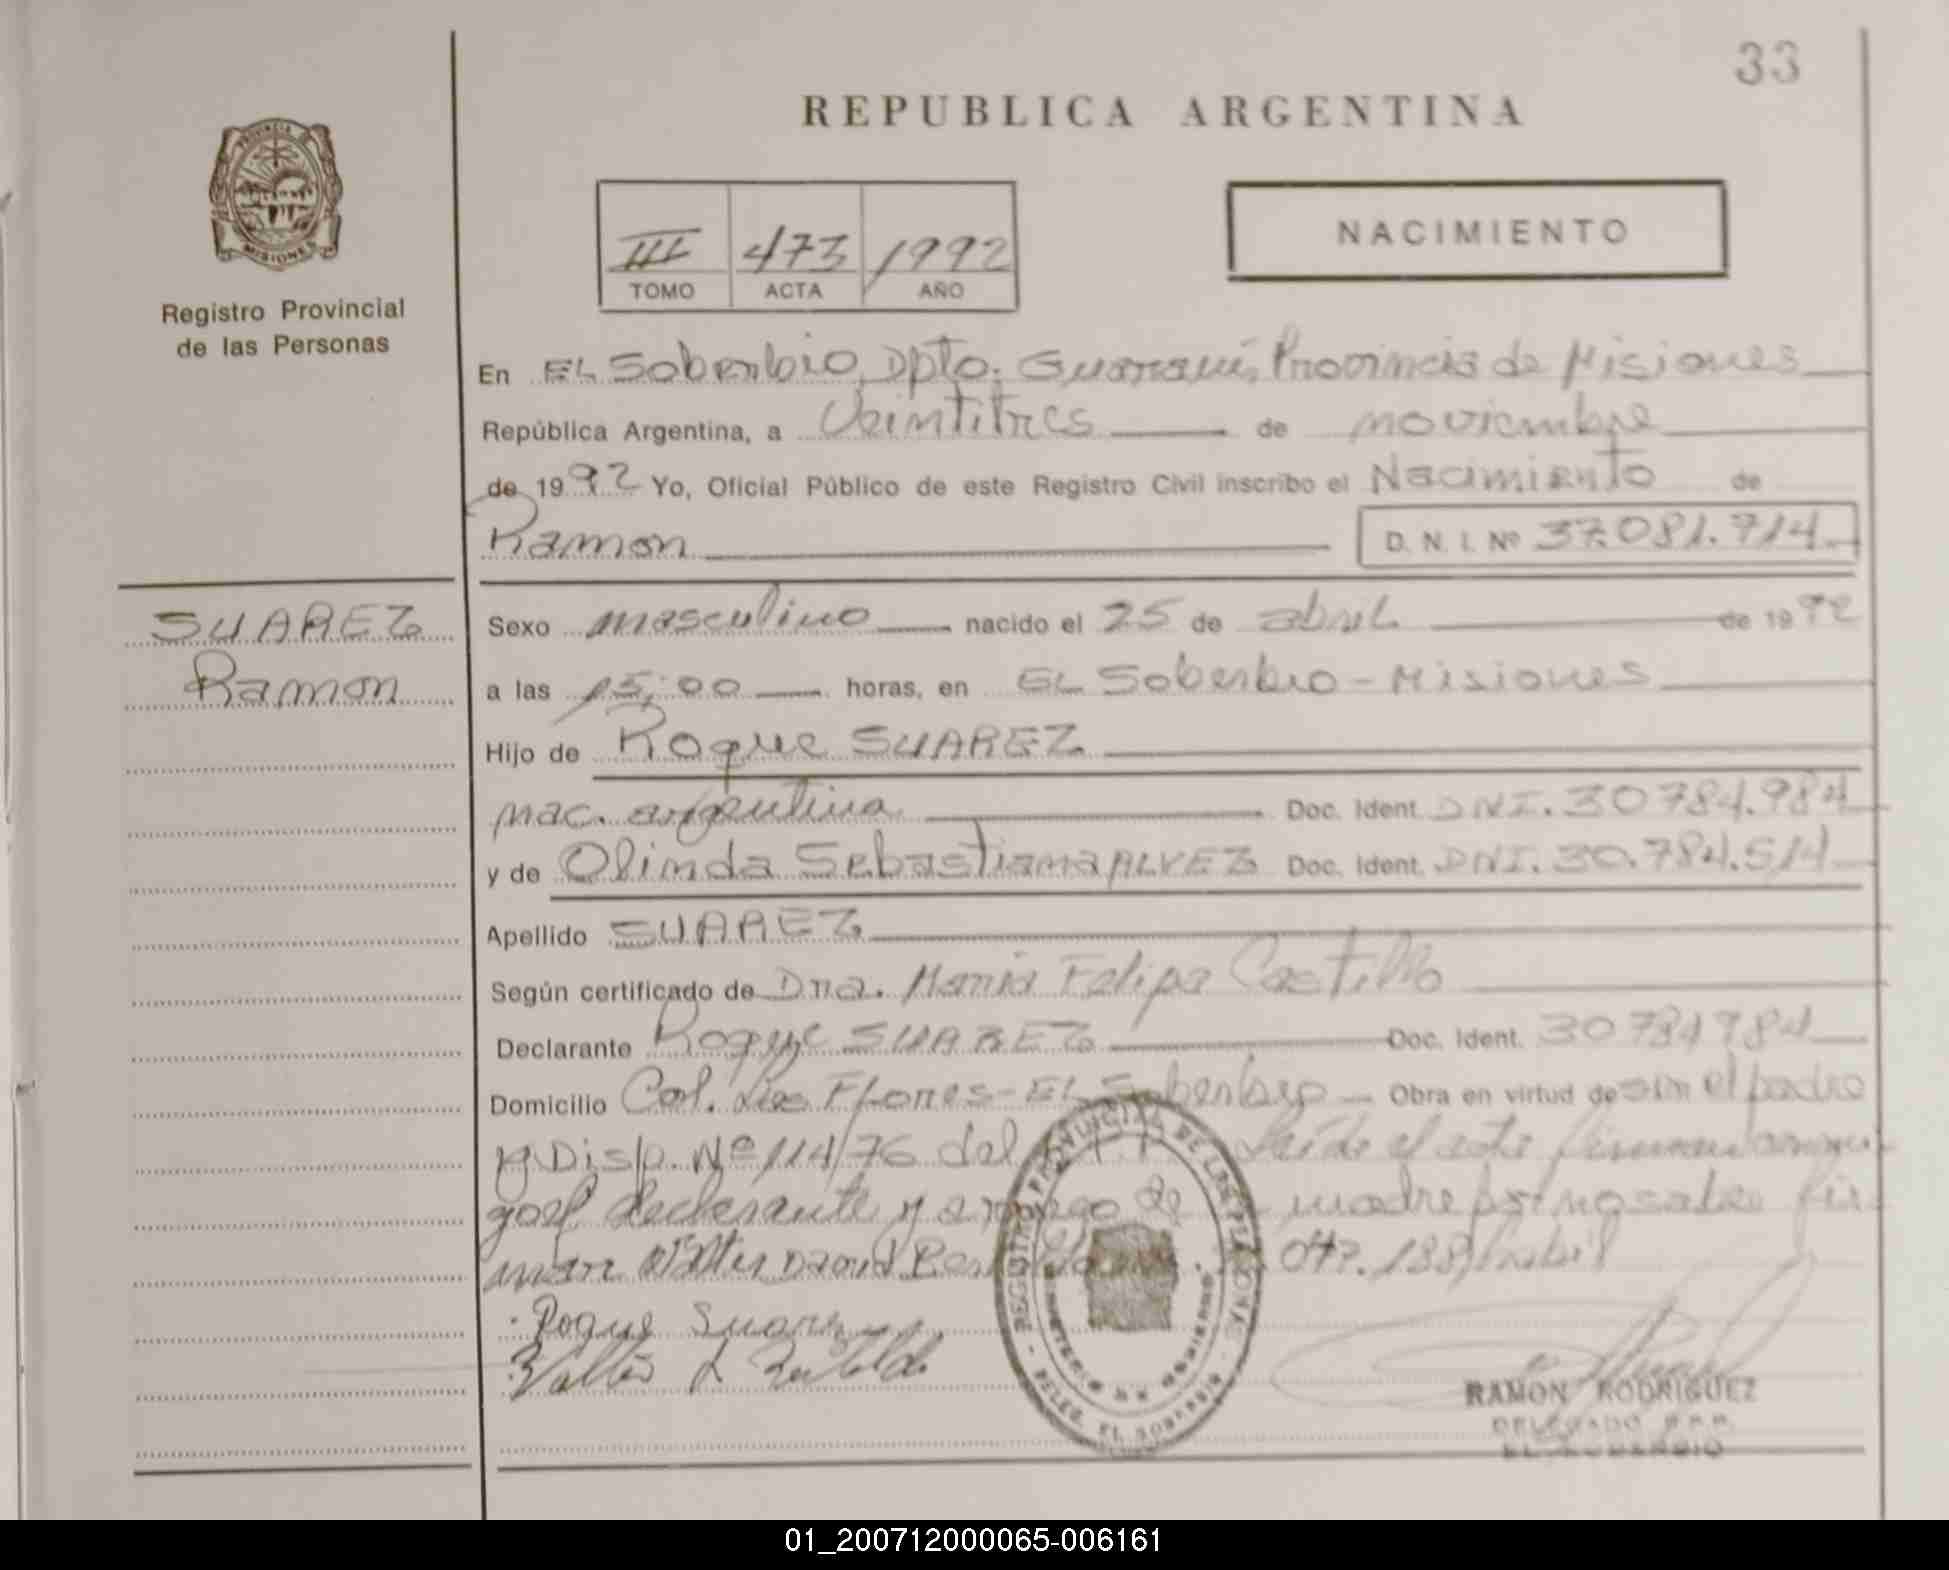 33
REPUBLICA ARGENTINA
PROVINCIA DE MISIONES
Registro Provincial
de las Personas
III 473 1992
TOMO ACTA AÑO
NACIMIENTO
En EL Soberbio, Dpto. Guaraní, Provincia de Misiones
República Argentina, a Veintitres de noviembre
de 1992 Yo, Oficial Público de este Registro Civil inscribo el Nacimiento de
Ramon D. N. I. Nº 37.081.714
SUAREZ
Ramon
Sexo masculino nacido el 25 de abril de 1992
a las 15;00 horas, en EL Soberbio - Misiones
Hijo de Roque SUAREZ
nac. argentina Doc. Ident. DNI. 30784.984
y de Olinda Sebastiana ALVEZ Doc. Ident. DNI. 30.784.514
Apellido SUAREZ
Según certificado de Dra. Maria Felipa Castillo
Declarante Roque SUAREZ Doc. Ident. 30784984
Domicilio Col. Las Flores - EL Soberbio - Obra en virtud de ser el padre
y Disp. Nº 114/76 del Leída el acta firman conmi
go el declarante y a ruego de madre por no saber fir
mar Walter David
Roque Suarez
REGISTRO PROVINCIAL DE LAS PERSONAS
MINISTERIO DE GOBIERNO
DELEG. EL SOBERBIO
RAMON RODRIGUEZ
DELEGADO R.P.P.
EL SOBERBIO
01_200712000065-006161